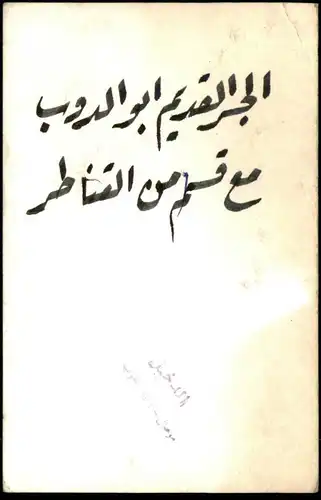 الجسر القديم ابو الدوب
مع قسم من القناطر